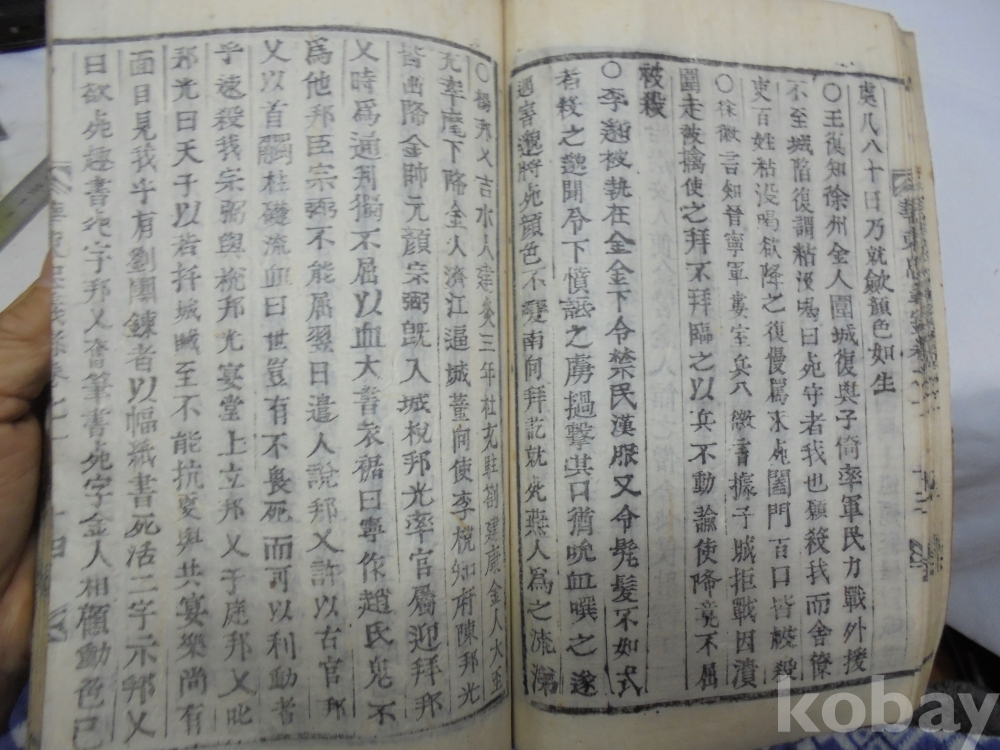 虞凡八十日乃就歛顔色如生
○王復知徐州金人圍城復與子倚率軍民力戰外援
不至城陷復謂粘沒喝曰死守者我也願殺我而舍僚
吏百姓粘沒喝欲降之復慢罵求死闔門百口皆被殺
○徐徽言知晉寧軍婁室兵入徽言據子城拒戰因潰
圍走被擒使之拜不拜臨之以兵不動諭使降竟不屈
被殺
○李邈被執在金金下令禁民漢服又令髡髮不如式
者殺之邈聞令下憤詬之虜撾擊其口猶吮血噀之遂
遇害邈將死顔色不變南向拜訖就死燕人爲之流涕
○楊邦乂吉水人建炎三年杜充駐劄建康金人大至
充率麾下降金人濟江逼城董向使李梲知府陳邦光
皆出降金帥元顔宗弼旣入城梲邦光率官屬迎拜邦
乂時爲通判獨不屈以血大書衣裾曰寧作趙氏鬼不
爲他邦臣宗弼不能屈翌日遣人說邦乂許以右官邦
乂以首觸柱礎流血曰世豈有不畏死而可以利動者
乎速殺我宗弼與梲邦光宴堂上立邦乂于庭邦乂叱
邦光曰天子以若扞城賊至不能抗更與共宴樂尚有
面目見我乎有劉團鍊者以幅紙書死活二字示邦乂
曰欲死趣書死字邦乂奮筆書死字金人相顧動色已
kobay